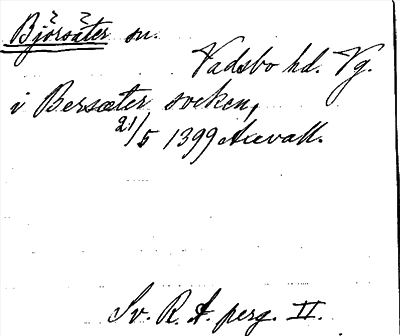 Björsäter sn.
Vadsbo hd. Vg.
i Bersæter soken,
21/5 1399 Axvall.
Sv. R. A. perg. II.